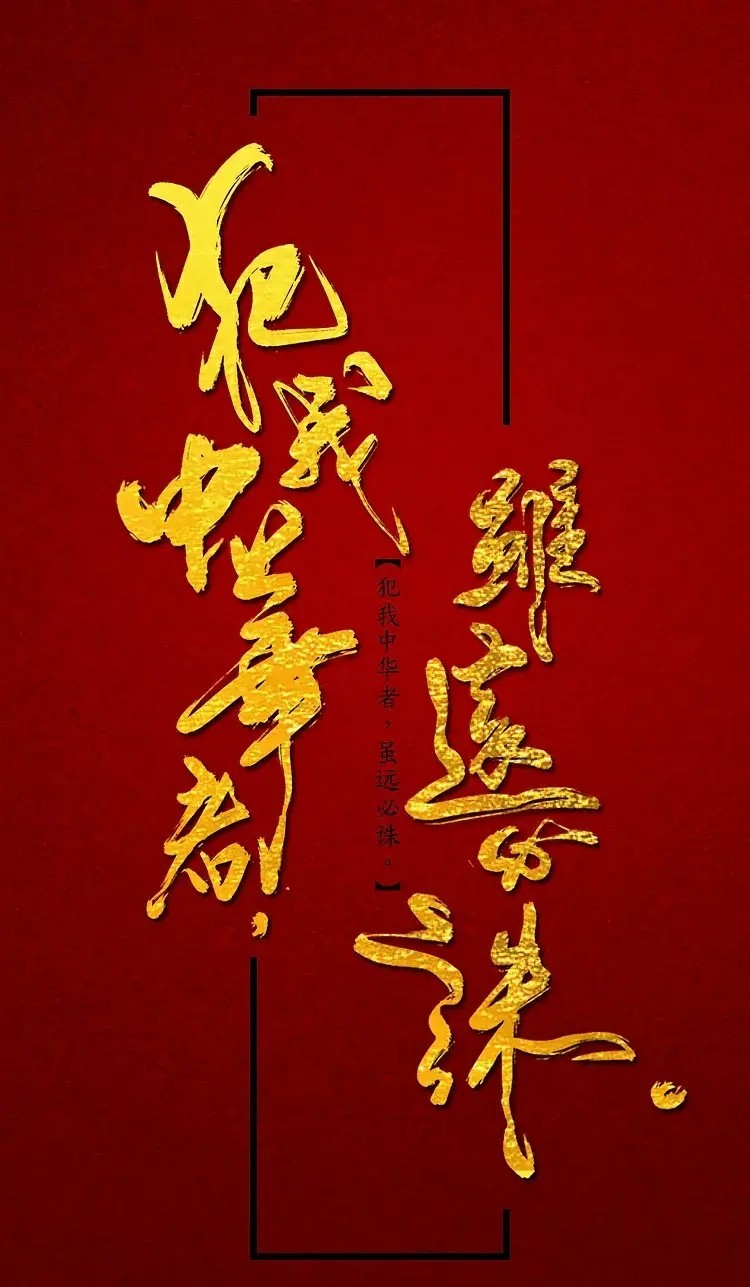 犯我中華者，
【犯我中华者，虽远必诛。】
雖遠必誅。